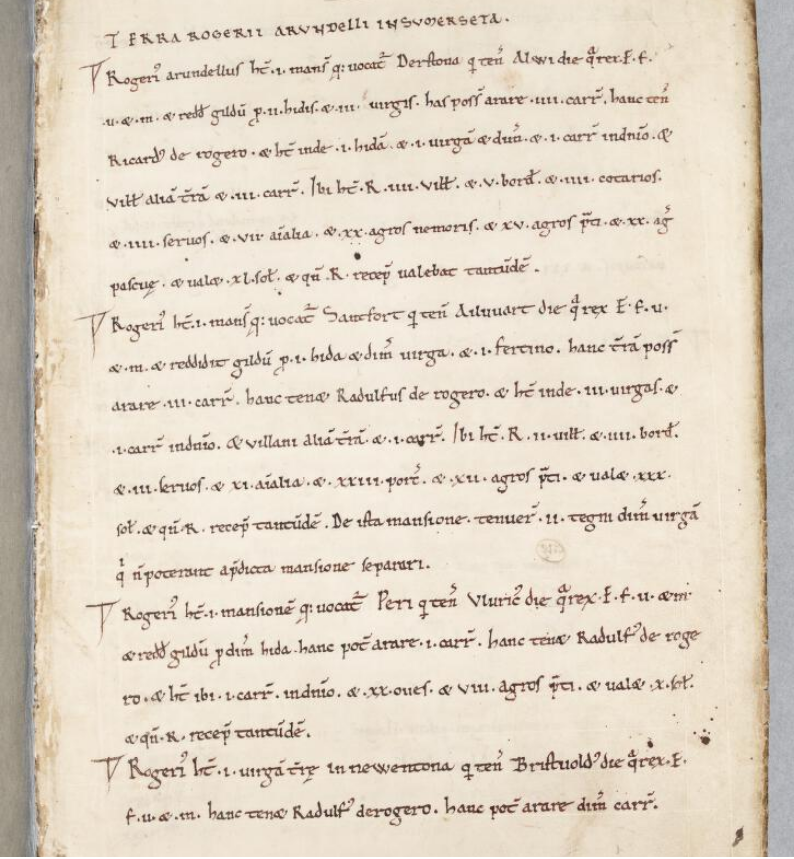 TERRA ROGERII ARUNDELLI IN SUMERSETA.
Rogeri᷒ arundellus ht̄ .i. mans̄ q: uocat̄ Derstona q̄ ten̄ Alwi die q̄ rex .E. f.
.u. & .m. & redd̄ gildū ꝑ .ii. hidis. & .iii. virgis. has poss̄ arare .iiii. carr̄. hanc ten̄
Ricard᷒ de rogero. & ht̄ inde .i. hidā. & .i. uirgā & dim̄. & .i. carr̄ in dn̄io. &
vill̄ aliā t̄rā & .iii. carr̄. Ibi ht̄ .R. iiii. vill̄. & .v. bord̄. & .iiii. cotarios.
& .iiii. seruos. & .vii. aīalia. & .xx. agros nemoris. & xv. agros p̄ti. & .xx. aḡ
pascuę. & ual& .xl. sol̄. & qn̄ .R. recep̄ ualebat tantūdē.
Rogeri᷒ ht̄ .i. mans̄ q: uocat̄ Sanfort q̄ ten̄ Ailuuart die q̄ rex .E. f. u.
& .m. & reddidit gildū ꝑ .i. hida & dim̄ virga. & .i. fertino. hanc t̄rā poss̄
arare .iii. carr̄. hanc ten& Radulfus de rogero. & ht̄ inde .iii. uirgas. &
.i. carr̄ in dn̄io. & villani aliā t̄rā & .i. carr̄. Ibi ht̄ .R. ii. vill̄. & .iiii. bord̄.
& .iii. seruos. & xi. aīalia. & .xxiii. porc̄. & .xii. agros p̄ti. & ual& .xxx.
sol̄. & qn̄ .R. recep̄ tantūdē. De ista mansione tenuer̄ .ii. tegni dim̄ uirgā
q̄ n̄ poterant a p̄dicta mansione separari.
Rogeri᷒ ht̄ .i. mansionē q: uocat̄ Peri q̄ ten̄ Vluric᷒ die q̄ rex .E. f. u. & m.
& redd̄ gildū ꝑ dim̄ hida. hanc pot̄ arare .i. carr̄. hanc ten& Radulf᷒ de roge
ro. & ht̄ ibi .i. carr̄. in dn̄io. & .xx. oues. & viii. agros p̄ti. & ual& .x. sol̄.
& qn̄ .R. recep̄ tantūdē.
Rogeri᷒ ht̄ .i. uirgā t̄rę in newentona q̄ ten̄ Bristuold᷒ die q̄ rex .E.
f. u. & .m. hanc ten& Radulf᷒ de rogero. hanc pot̄ arare dim̄ carr̄.